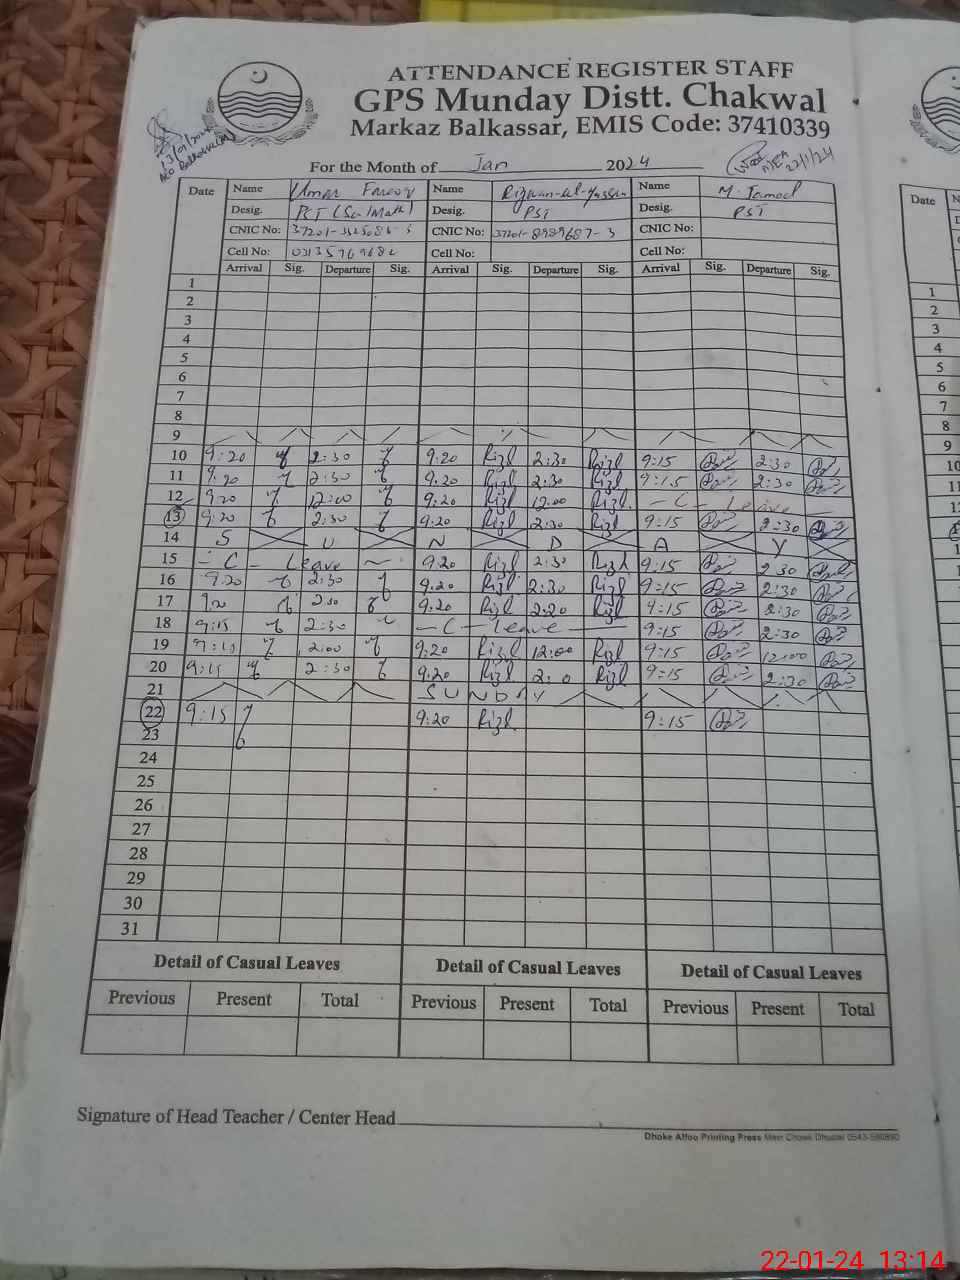 ATTENDANCE REGISTER STAFF
GPS Munday Distt. Chakwal
Markaz Balkassar, EMIS Code: 37410339
For the Month of Jan 2024
22/1/24
Date Name Umar Farooq Name Rizwan-ul-Hassan Name M. Jameel
Desig. PST (Sci/Math) Desig. PST Desig. PST
CNIC No: CNIC No: 37201-8989687-3 CNIC No:
Cell No: Cell No: Cell No:
Arrival Sig. Departure Sig. Arrival Sig. Departure Sig. Arrival Sig. Departure Sig.
1
2
3
4
5
6
7
8
9
10 9:20 2:30 9.20 Rizl 2:30 Rizl 9:15 2:30
11 9.20 2:30 9.20 Rizl 2:30 Rizl 9:15 2:30
12 9.20 12:00 9:20 Rizl 12:00 Rizl - C - Leave -
13 9:20 2:30 9:20 Rizl 2:30 Rizl 9:15 2:30
14 S U N D A Y
15 - C - Leave - 9:20 Rizl 2:30 Rizl 9:15 2:30
16 9.20 2:30 9:20 Rizl 2:30 Rizl 9:15 2:30
17 9.20 2:30 9:20 Rizl 2:20 Rizl 9:15 2:30
18 9:15 2:30 - C - leave - 9:15 2:30
19 9:15 2:00 9:20 Rizl 12:00 Rizl 9:15 12:00
20 9:15 2:30 9.20 Rizl Rizl 9:15 2:30
21 SUNDAY
22 9:15 9:20 Rizl 9:15
23
24
25
26
27
28
29
30
31
Detail of Casual Leaves Detail of Casual Leaves Detail of Casual Leaves
Previous Present Total Previous Present Total Previous Present Total
Signature of Head Teacher / Center Head
Dhoke Alfoo Printing Press Main Chowk Dhudial
Date
1
2
3
4
5
6
7
8
9
10
11
22-01-24 13:14